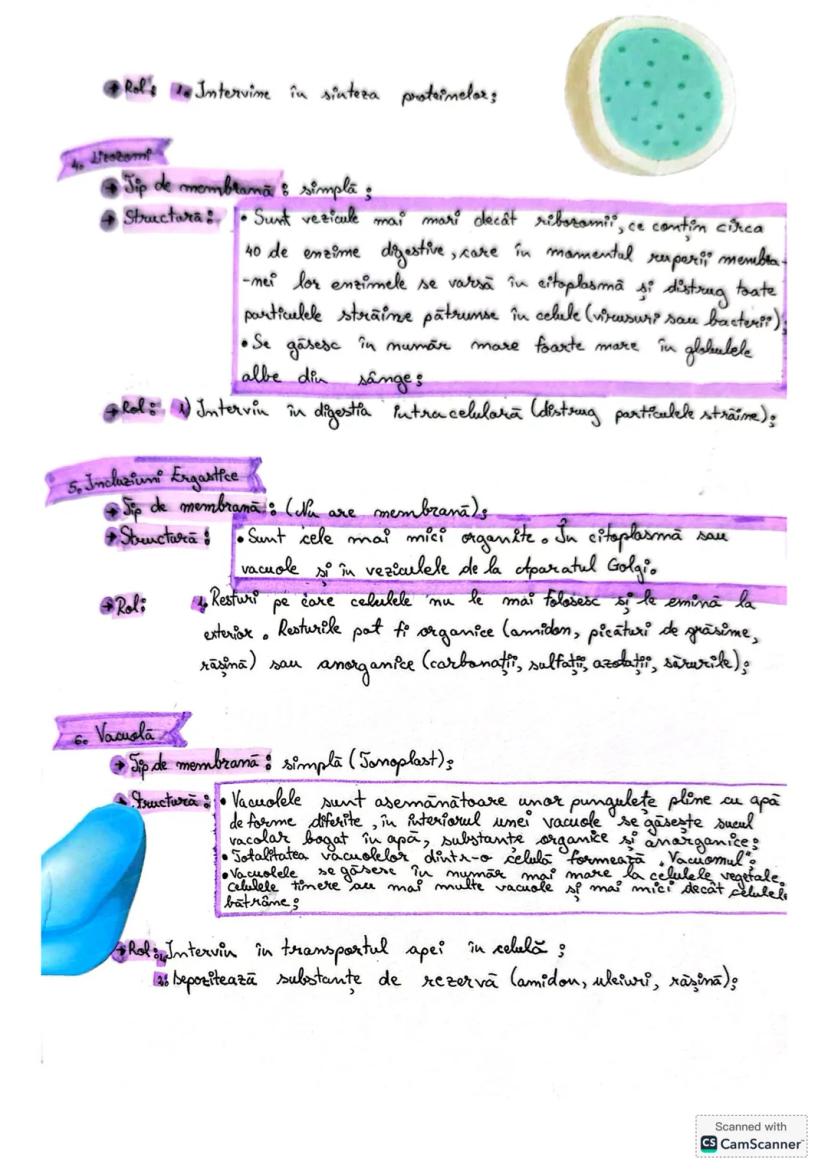 → Rol: 1. Intervine în sinteza proteinelor;
4. Lizozomi
→ Tip de membrană: simplă;
→ Structură: • Sunt vezicule mai mari decât ribozomii, ce conțin circa
40 de enzime digestive, care în momentul ruperii membra-
-nei lor enzimele se varsă în citoplasmă și distrug toate
particulele străine pătrunse în celule (virusuri sau bacterii);
• Se găsesc în număr mare foarte mare în globulele
albe din sânge;
→ Rol: 1) Intervin în digestia intracelulară (distrug particulele străine);
5. Incluziuni Ergastice
→ Tip de membrană: (Nu are membrană);
→ Structură: • Sunt cele mai mici organite. În citoplasmă sau
vacuole și în veziculele de la Aparatul Golgi.
→ Rol: 1. Resturi pe care celulele nu le mai folosesc și le emină la
exterior. Resturile pot fi organice (amidon, picături de grăsime,
rășină) sau anorganice (carbonații, sulfații, azotații, sărurile);
6. Vacuolă
→ Tip de membrană: simplă (Tonoplast);
→ Structură: • Vacuolele sunt asemănătoare unor pungulețe pline cu apă
de forme diferite, în interiorul unei vacuole se găsește sucul
vacolar bogat în apă, substanțe organice și anorganice;
• Totalitatea vacuolelor dintr-o celulă formează „Vacuomul";
• Vacuolele se găsesc în număr mai mare la celulele vegetale.
Celulele tinere au mai multe vacuole și mai mici decât celulele
bătrâne;
→ Rol: 1. Intervin în transportul apei în celulă;
2. Depozitează substanțe de rezervă (amidon, uleiuri, rășină);
Scanned with
CS CamScanner